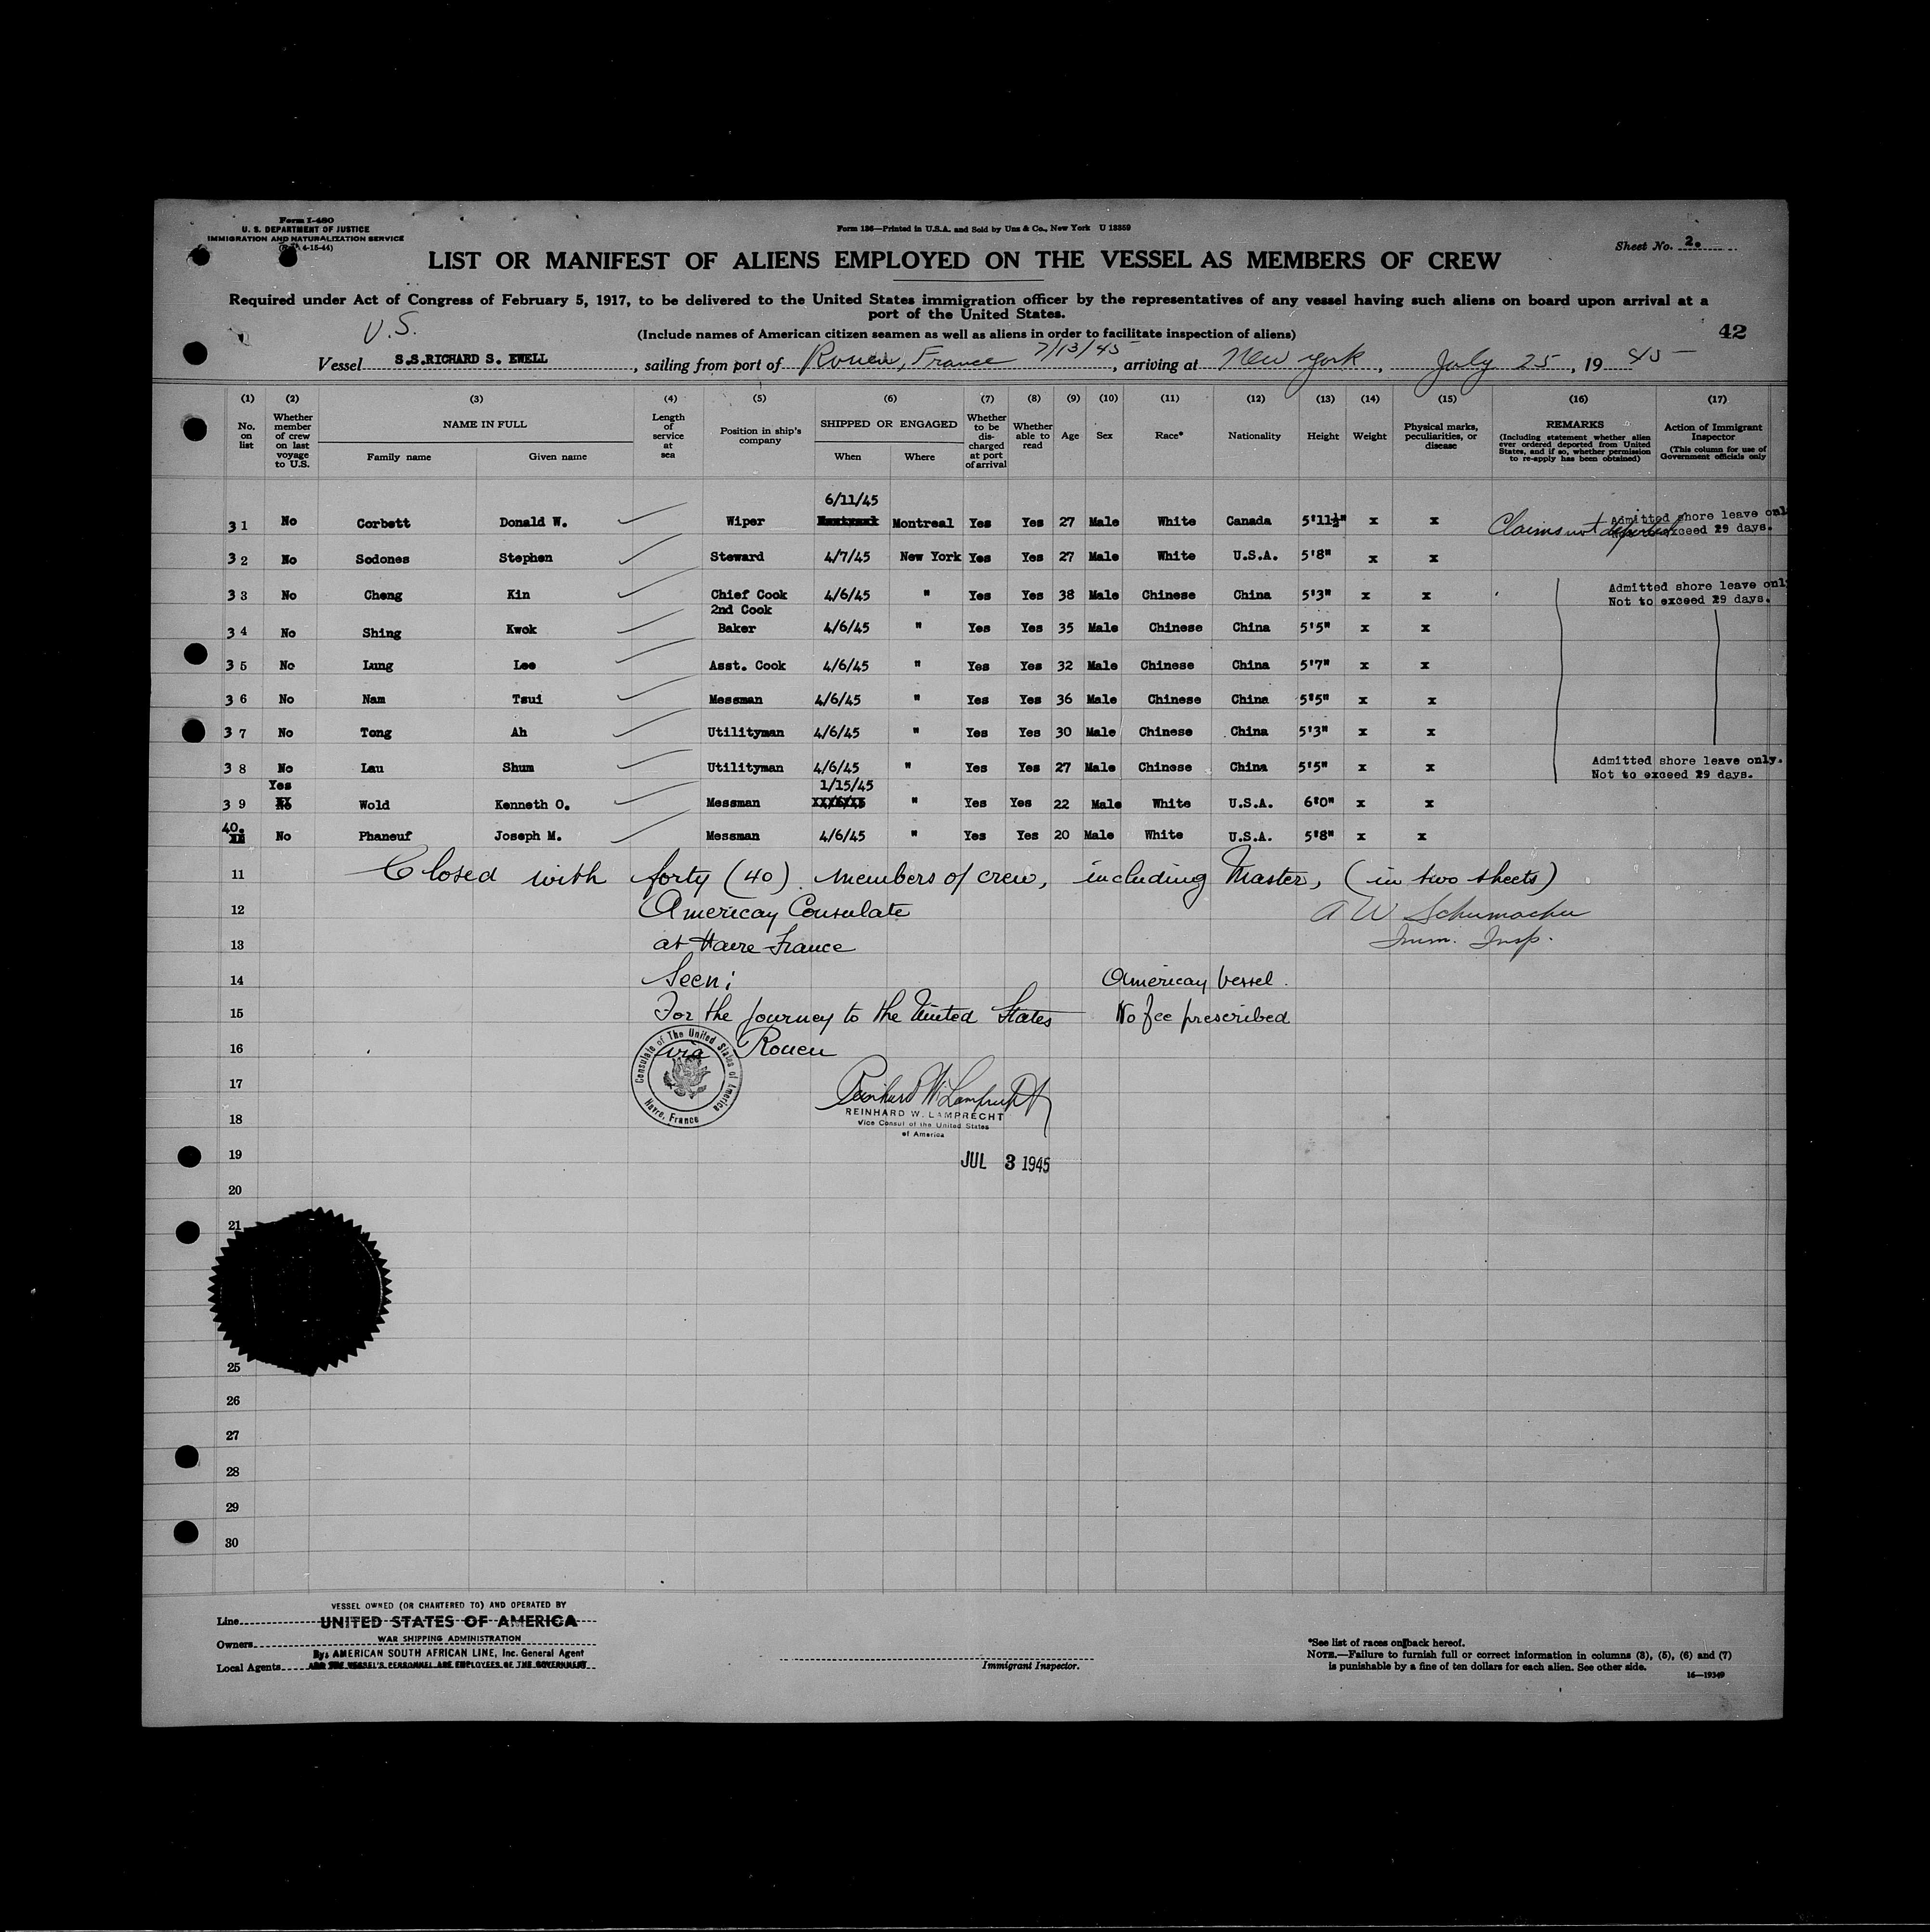 Form I-480
U. S. DEPARTMENT OF JUSTICE
IMMIGRATION AND NATURALIZATION SERVICE
4-15-44)
Form 136—Printed in U.S.A. and Sold by Unz & Co., New York U 13359
Sheet No. 2.
LIST OR MANIFEST OF ALIENS EMPLOYED ON THE VESSEL AS MEMBERS OF CREW
Required under Act of Congress of February 5, 1917, to be delivered to the United States immigration officer by the representatives of any vessel having such aliens on board upon arrival at a
port of the United States.
U.S.
(Include names of American citizen seamen as well as aliens in order to facilitate inspection of aliens)
42
Vessel S.S.RICHARD S. EWELL, sailing from port of Rouen, France 7/13/45, arriving at New York, July 25, 19 45
(1) (2) (3) (4) (5) (6) (7) (8) (9) (10) (11) (12) (13) (14) (15) (16) (17)
No. on list
Whether member of crew on last voyage to U.S.
NAME IN FULL
Family name Given name
Length of service at sea
Position in ship's company
SHIPPED OR ENGAGED
When Where
Whether to be discharged at port of arrival
Whether able to read
Age Sex Race* Nationality Height Weight
Physical marks, peculiarities, or disease
REMARKS
(Including statement whether alien ever ordered deported from United States, and if so, whether permission to re-apply has been obtained)
Action of Immigrant Inspector
(This column for use of Government officials only
6/11/45
31 No Corbett Donald W. Wiper Montreal Yes Yes 27 Male White Canada 5'11½" x x Claims not deported Admitted shore leave only
exceed 29 days.
32 No Sodones Stephen Steward 4/7/45 New York Yes Yes 27 Male White U.S.A. 5'8" x x
33 No Cheng Kin Chief Cook 4/6/45 " Yes Yes 38 Male Chinese China 5'3" x x Admitted shore leave only
Not to exceed 29 days.
2nd Cook
34 No Shing Kwok Baker 4/6/45 " Yes Yes 35 Male Chinese China 5'5" x x
35 No Lung Lee Asst. Cook 4/6/45 " Yes Yes 32 Male Chinese China 5'7" x x
36 No Nam Tsui Messman 4/6/45 " Yes Yes 36 Male Chinese China 5'5" x x
37 No Tong Ah Utilityman 4/6/45 " Yes Yes 30 Male Chinese China 5'3" x x
38 No Lau Shum Utilityman 4/6/45 " Yes Yes 27 Male Chinese China 5'5" x x Admitted shore leave only.
Not to exceed 29 days.
Yes 1/15/45
39 No Wold Kenneth O. Messman " Yes Yes 22 Male White U.S.A. 6'0" x x
40. No Phaneuf Joseph M. Messman 4/6/45 " Yes Yes 20 Male White U.S.A. 5'8" x x
11 Closed with forty (40) members of crew, including Master, (in two sheets)
12 American Consulate A W Schumacher
13 at Havre France Imm. Insp.
14 Seen: American Vessel.
15 For the journey to the United States No fee prescribed
16 via Rouen
Consulate of The United States of America
Havre, France
17 Reinhard W. Lamprecht
REINHARD W. LAMPRECHT
Vice Consul of the United States
18 of America
19 JUL 3 1945
20
21
25
26
27
28
29
30
VESSEL OWNED (OR CHARTERED TO) AND OPERATED BY
Line UNITED STATES OF AMERICA
Owners WAR SHIPPING ADMINISTRATION
By: AMERICAN SOUTH AFRICAN LINE, Inc. General Agent
Local Agents AND THE VESSEL'S PERSONNEL ARE EMPLOYEES OF THE GOVERNMENT
Immigrant Inspector.
*See list of races on back hereof.
NOTE.—Failure to furnish full or correct information in columns (3), (5), (6) and (7)
is punishable by a fine of ten dollars for each alien. See other side.
16—19349